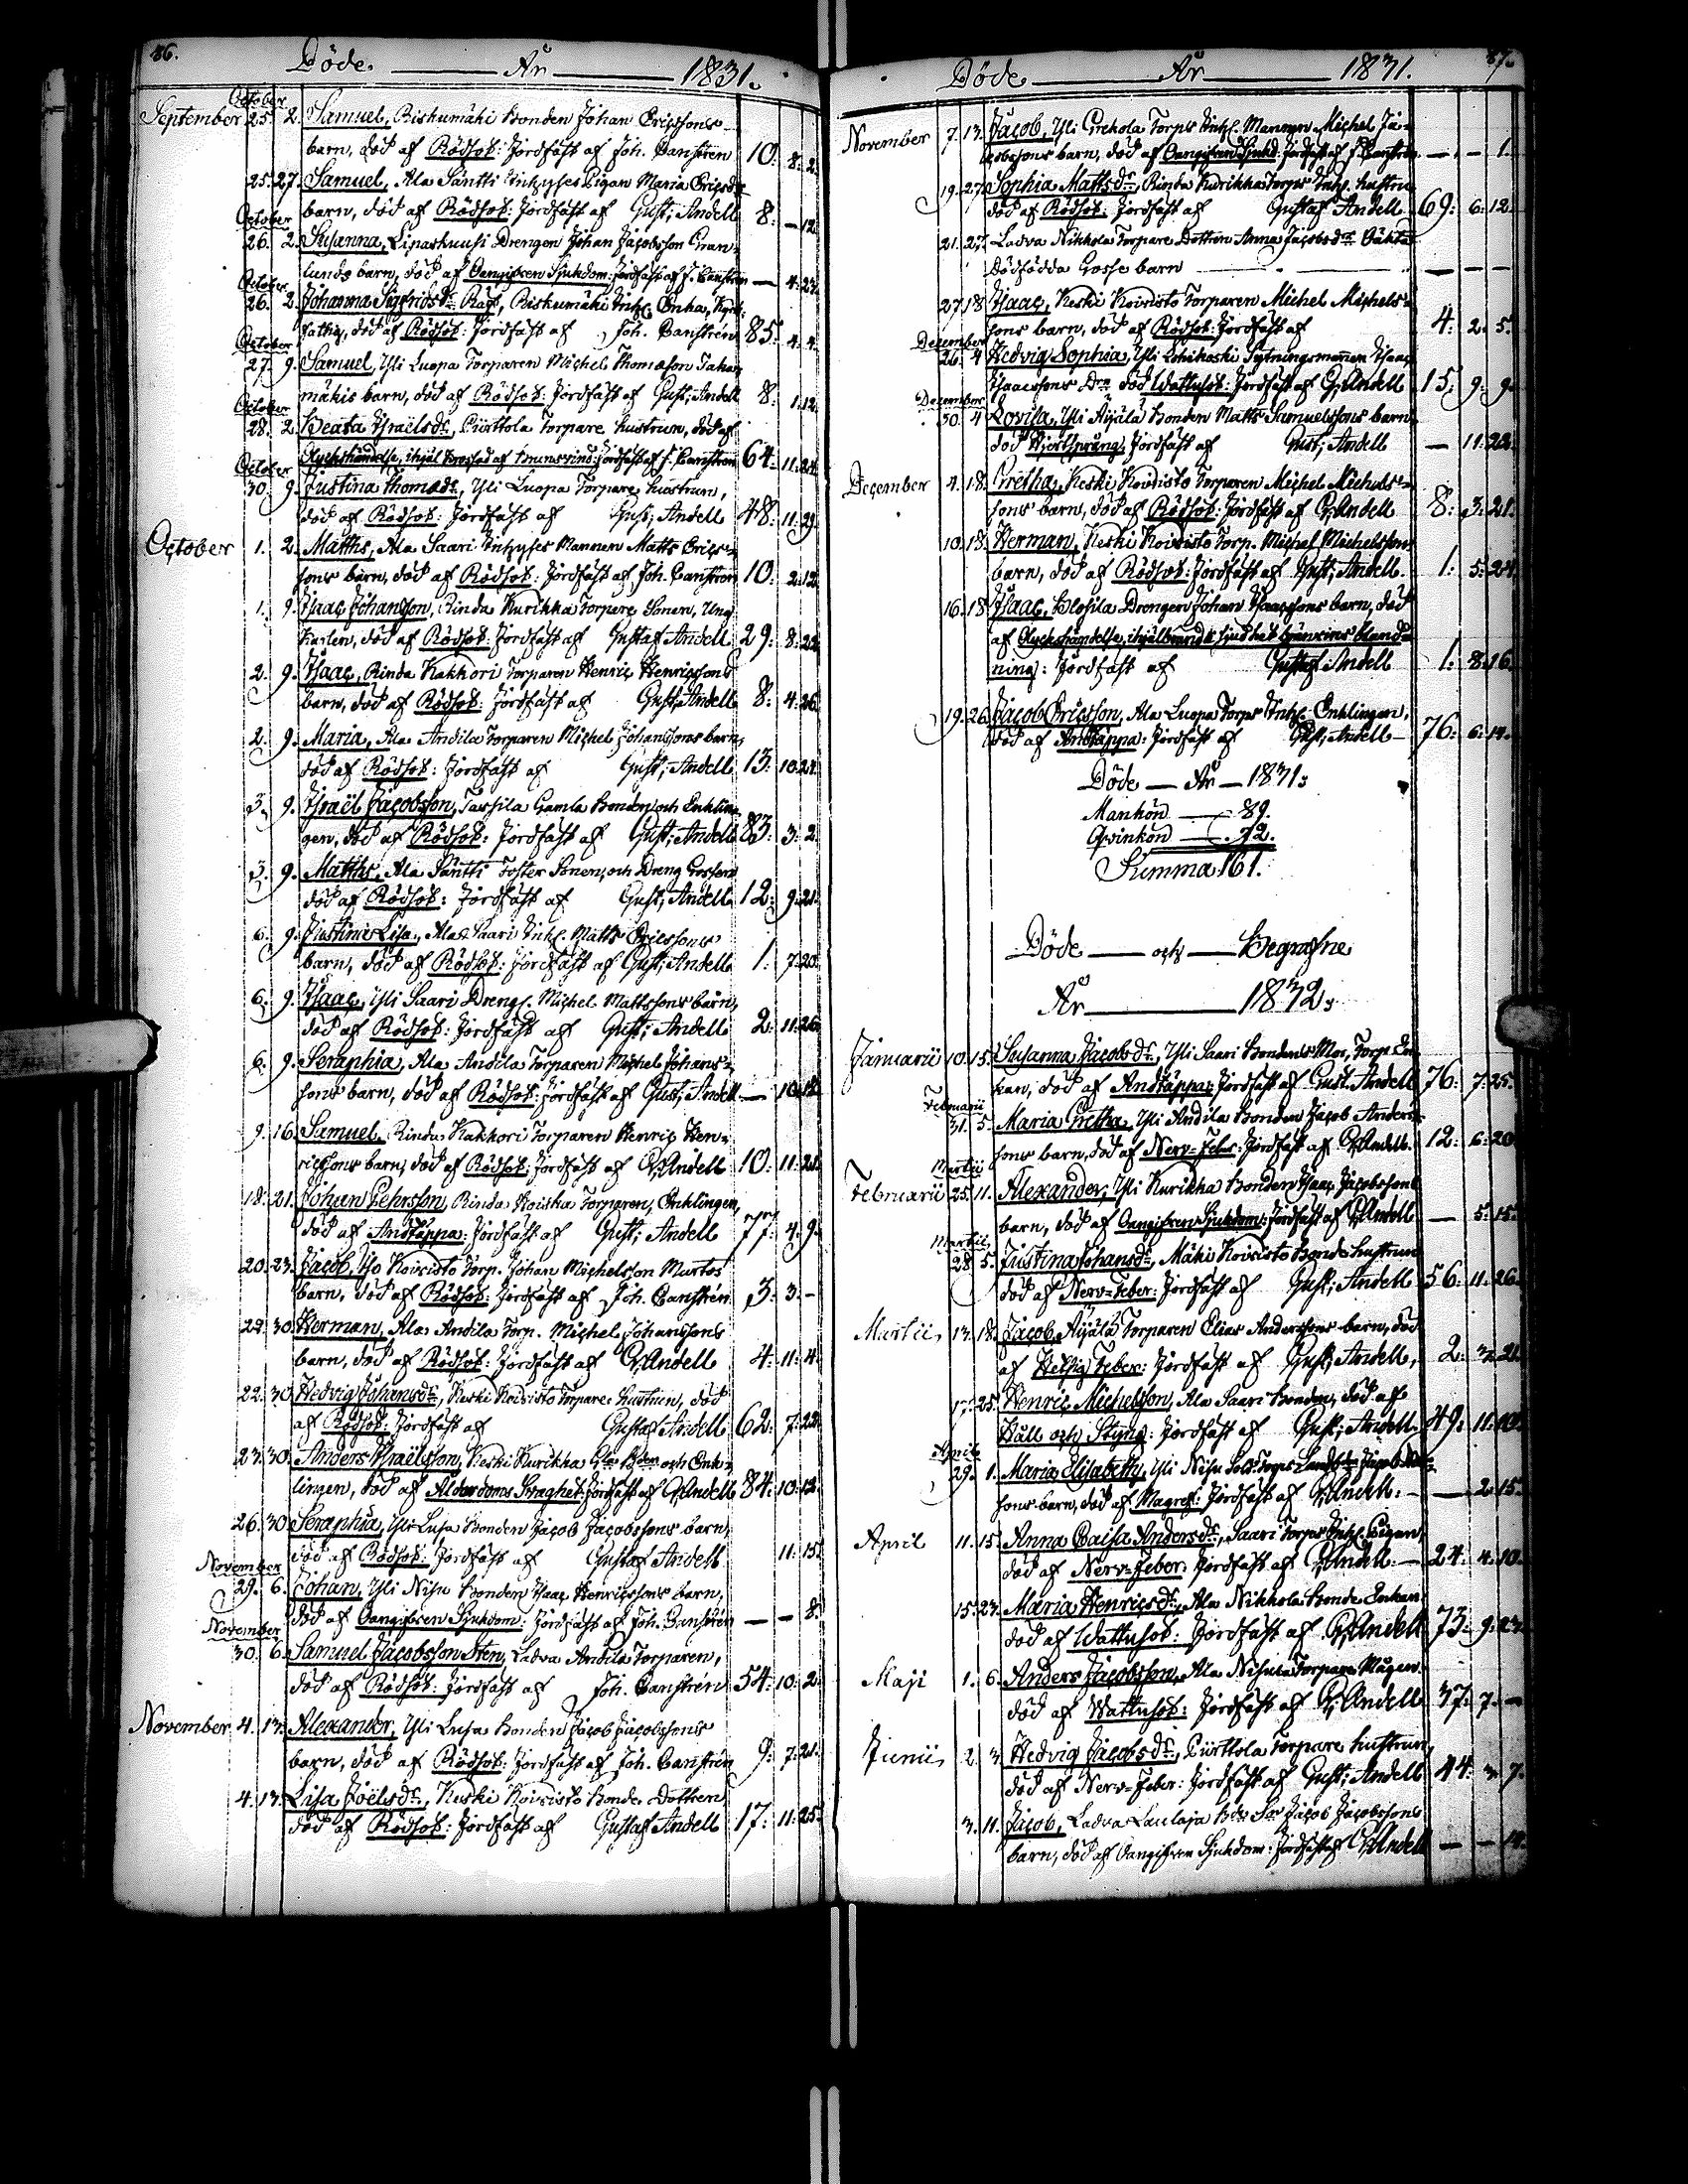 86.
Döde. År 1831.
October
September 25. 2. Samuel, Riskumäki Bonden Johan Ericssons
barn, död af Rödsot: Jordfäst af Joh. Canstrén 10: 8: 2.
25. 27. Samuel, Ala Säntti Inhyses Pigan Maria Ericsdrs
October barn, död af Rödsot: Jordfäst af Gust; Andell 8: — 12.
26. 2. Susanna, Lipaskuusi Drengen Johan Jacobsson Gran-
lunds barn, död af Oangifven Sjukdom: Jordfäst af J. Canstrén — 4: 27.
October
26. 2. Johanna Sigfridsdr Räf, Riskumäki Inh. Enka,
fattig, död af Rödsot: Jordfäst af Joh. Canstrén 85: 4. 4.
October
27. 9. Samuel, Yli Luopa Torparen Michel Thomasson
mäkis barn, död af Rödsot: Jordfäst af Gust; Andell 8: 1. 12.
October
28. 2. Beata Israelsdr, Piirttola Torpare hustrun, död af
Olyckshändelse, ihjäl krossad af brunsvind: Jordfäst af J. Canstrén 64: 11: 24.
October
30. 9. Justina Thomasdr, Yli Luopa Torpare hustrun,
död af Rödsot: Jordfäst af Gust; Andell 48: 11: 29.
October 1. 2. Matths, Ala Saari Inhyses Mannen Matts Erics-
sons barn, död af Rödsot: Jordfäst af Joh. Canstrén 10: 2: 12.
1. 9. Isaac Johansson, Rinda Kurikka Torpare Sonen, Ung
Karlen, död af Rödsot: Jordfäst af Gustaf Andell 29: 8: 22.
2. 9. Isaac, Rinda Kakkori Torparen Henric Henricssons
barn, död af Rödsot: Jordfäst af Gust; Andell 8: 4: 26.
2. 9. Maria, Ala Andila Torparen Michel Johanssons barn,
död af Rödsot: Jordfäst af Gust; Andell 13: 10: 24.
3. 9. Israel Jacobsson, Tassila Gamla Bonden och Enklin-
gen, död af Rödsot: Jordfäst af Gust; Andell 83: 3: 2.
3. 9. Matths, Ala Säntti Foster Sonen, och Dreng Gossen
död af Rödsot: Jordfäst af Gust; Andell 12: 9: 21.
6. 9. Justina Lisa, Ala Saari Inh. Matts Ericssons
barn, död af Rödsot: Jordfäst af Gust; Andell 1: 7: 20.
6. 9. Isaac, Yli Saari Drengs. Michel Mattssons barn,
död af Rödsot: Jordfäst af Gust; Andell 2: 11: 26.
6. 9. Seraphia, Ala Andila Torparen Michel Johans-
sons barn, död af Rödsot: Jordfäst af Gust; Andell — 10: 18.
9. 16. Samuel, Rinda Kakkori Torparen Henric Hen-
ricssons barn, död af Rödsot: Jordfäst af G; Andell 10: 11: 21.
18. 21. Johan Pehrsson, Rinda Koiska Torparen, Enklingen,
död af Andtäppa: Jordfäst af Gust; Andell 77: 4: 9.
20. 23. Jacob, Iso Koivisto Torp. Johan Michelsson Murtos
barn, död af Rödsot: Jordfäst af Joh. Canstrén 3: 3: —
29. 30. Herman, Ala Andila Torp. Michel Johanssons
barn, död af Rödsot: Jordfäst af G; Andell 4: 11: 4.
22. 30. Hedvig Johansdr, Keski Koivisto Torpare hustrun, död
af Rödsot: Jordfäst af Gustaf Andell 62: 7: 22.
23. 30. Anders Israelsson, Keski Kurikka Gla Bden och Enk-
lingen, död af Ålderdoms Svaghet: Jordfäst af G; Andell 84: 10: 13.
26. 30. Seraphia, Yli Lusa Bonden Jacob Jacobssons barn,
död af Rödsot: Jordfäst af Gustaf Andell 11: 15.
November
29. 6. Johan, Yli Nisu Bonden Isaac Henricssons barn,
död af Oangifven Sjukdom: Jordfäst af Joh. Canstrén — — 8.
November
30. 6. Samuel Jacobsson Sten, Ladva Andila Torparen,
död af Rödsot: Jordfäst af Joh. Canstrén 54: 10: 2.
November 4. 13. Alexander, Yli Lusa Bonden Jacob Jacobssons
barn, död af Rödsot: Jordfäst af Joh. Canstrén 9: 7: 21.
4. 13. Lisa Joëlsdr, Keski Koivisto Bonde Dottren
död af Rödsot: Jordfäst af Gustaf Andell 17: 11: 25.
87.
Döde År 1831.
November 7. 13. Jacob, Yli Grekola Torps Inh. Mannen Michel Ja-
cobssons barn, död af Oangifven Sjukd: Jordfäst af J. Canstrén — — 1.
19. 27. Sophia Mattsdr, Rinda Kurikka Torps Inh. hustru
död af Rödsot: Jordfäst af Gustaf Andell 69: 6: 12.
21. 27. Ladva Nikkola Torpare Dottren Anna Jacobsdrs Oäkta
Dödfödda Gosse barn — — —
27. 18. Isaac, Keski Koivisto Torparen Michel Michels-
sons barn, död af Rödsot: Jordfäst af 4: 2: 5.
December
26. 4. Hedvig Sophia, Yli Sytningsmannen Isaac
Isaacssons Dr, död Wattusot: Jordfäst af G; Andell 15: 9: 9.
December
30. 4. Lovisa, Yli Äijälä Bonden Matts Samuelssons barn
död Hjertsprång: Jordfäst af Gust; Andell — 11: 28.
December 4. 18. Gretha, Keski Koivisto Torparen Michel Michels-
sons barn, död af Rödsot: Jordfäst af G; Andell 8: 3: 21.
10. 18. Herman, Keski Koivisto Torp. Michel Michelssons
barn, död af Rödsot: Jordfäst af Gust; Andell. 1: 5: 24.
16. 18. Isaac, Klosila Drengen Johan Isaacssons barn, död
af Olyckshändelse, ihjälbränd
: Jordfäst af Gustaf Andell 1: 8: 16.
19. 26. Jacob Ericsson, Ala Luopa Torps Inh. Enklingen,
död af Andtäppa: Jordfäst af Gust; Andell 76: 6: 14.
Döde — År — 1831:
Mankön — 89.
Qvinkön — 72.
Summa 161.
Döde — och — Begrafne
År 1832:
Januarii 10. 15. Susanna Jacobsdr, Yli Saari Bondens Mor, Torp. En-
kan, död af Andtäppa: Jordfäst af Gust. Andell 76: 7: 25.
Februarii
31. 5. Maria Gretha, Yli Andila Bonden Jacob Anders-
sons barn, död af Nerv-Feber: Jordfäst af G; Andell. 12: 6: 20.
Martii
Februarii 25. 11. Alexander, Yli Kurikka Bonden Isaac Jacobssons
barn, död af Oangifven Sjukdom: Jordfäst af G; Andell — 5: 15.
Martii
28. 5. Justina Johansdr, Mäki Koivisto Bonde hustrun
död af Nerv-Feber: Jordfäst af Gust; Andell 56: 11: 26.
Martii 13. 18. Jacob, Äijälä Torparen Elias Anderssons barn, död
af Hetsig Feber: Jordfäst af Gust; Andell, 2: 3: 21.
17. 25. Henric Michelsson, Ala Saari Bonden, död af
Håll och Styng: Jordfäst af Gust; Andell 49: 11: 12.
April
29. 1. Maria Elisabeth, Yli Nisu Sold. Torps Jacob
sons barn, död af Magref: Jordfäst af G; Andell. — 2: 15.
April 11. 15. Anna Caisa Andersdr, Saari Torps Inh. Pigan,
död af Nerv-Feber: Jordfäst af G; Andell. — 24: 4: 10.
15. 23. Maria Henricsdr, Ala Nikkola Bonde Enkan
död af Wattusot: Jordfäst af G; Andell 73: 9: 23.
Maji 1. 6. Anders Jacobsson, Ala Nisula Torpare Mågen
död af Wattusot: Jordfäst af G; Andell 37: 7: —
Junii 2. 3. Hedvig Jacobsdr, Piirttola Torpare hustrun,
död af Nerv-Feber: Jordfäst af Gust; Andell 44: 3: 7.
3. 11. Jacob, Ladva Laulaja Bde Son Jacob Jacobssons
barn, död af Oangifven Sjukdom: Jordfäst af G; Andell — — 14.